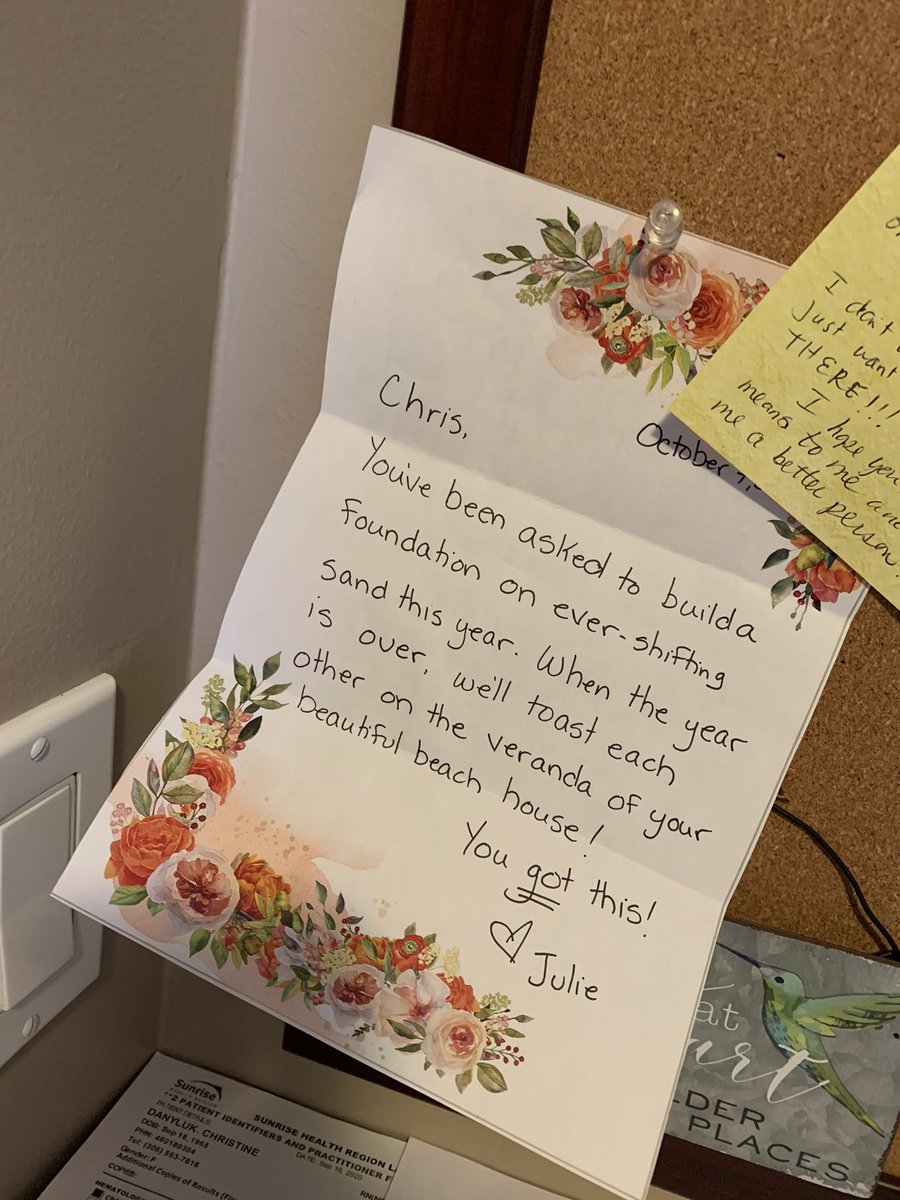 Chris,
October
You've been asked to build a
foundation on ever-shifting
sand this year. When the year
is over, we'll toast each
other on the veranda of your
beautiful beach house!
You got this!
Julie
I don't
just want
THERE!!!
I hope you
means to me and
me a better person.
at
art
LDER
PLACES
Sunrise
SUNRISE HEALTH REGION
**2 PATIENT IDENTIFIERS AND PRACTITIONER
PATIENT DETAILS:
DATE: Sep 10, 2020
DANYLUK, CHRISTINE
DOB: Sep 18, 1965
PHN: 460180304
Tel: (306) 563-7816
Gender: F
Additional Copies of Results
COPIES:
HEMATOLOGY